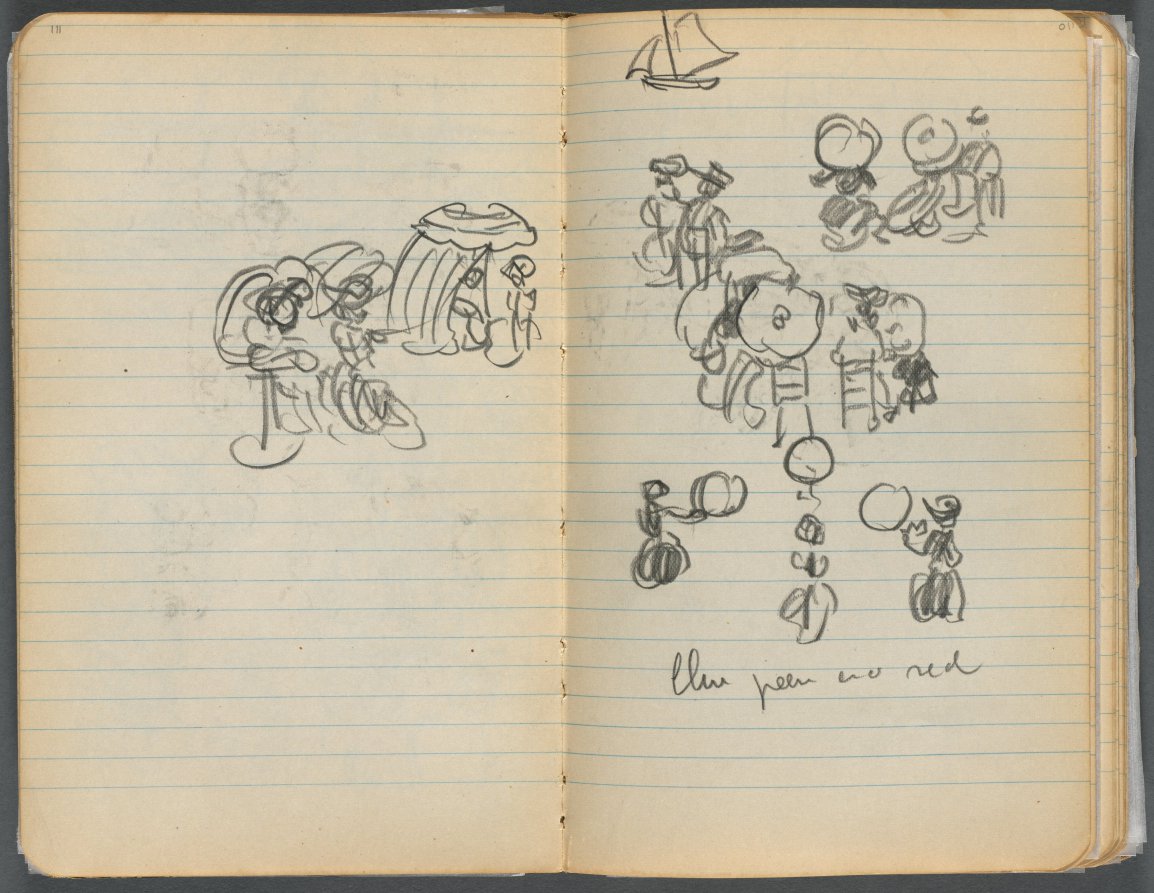 111
Blue green and red